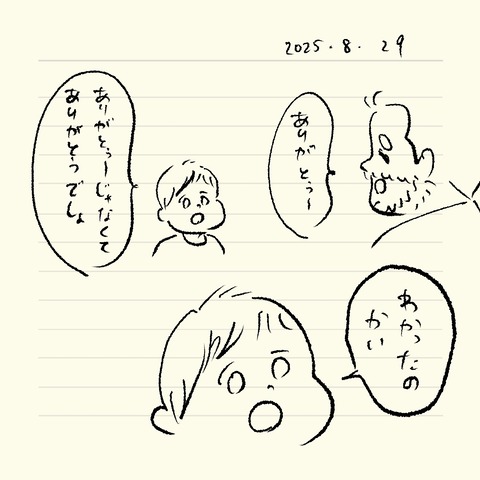 2025.8.29
ありがとぅ〜
ありがとぅーじゃなくて
ありがとうでしょ
わかったの
かい